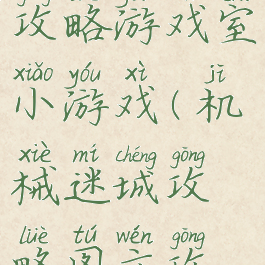 攻略游戏室
xiǎo yóu xì jī
小游戏(机
xiè mí chéng gōng
械迷城攻
lüè tú wén gōng
略图文攻